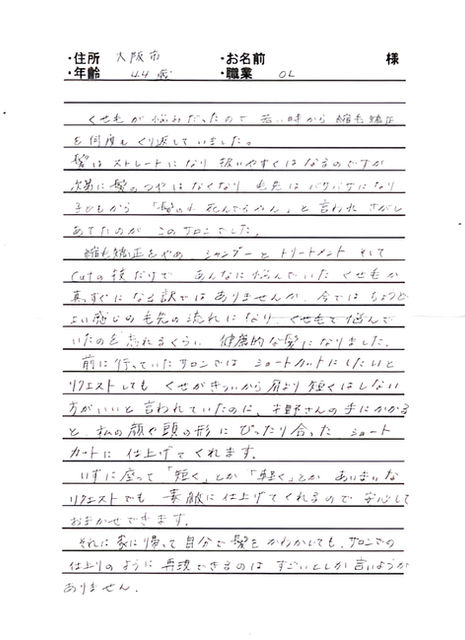 ・住所 大阪市 ・お名前 様
・年齢 44歳 ・職業 OL
くせ毛が悩みだったので 若い時から 縮毛矯正
を何度もくり返していました。
髪はストレートになり 扱いやすくはなるのですが
次第に髪のつやはなくなり 毛先はパサパサになり
子どもから「髪の毛 死んでるやん」と言われ さがし
あてたのが このサロンでした。
縮毛矯正をやめ、シャンプーと トリートメント そして
Cutの技だけで あんなに悩んでいた くせ毛が
真っすぐに なる訳では ありませんが、今では ちょうど
よい感じの毛先の流れになり、くせ毛で悩んで
いたのを忘れるくらい 健康的な髪になりました。
前に行っていたサロンでは ショートカットにしたいと
リクエストしても くせがきついから肩より短くはしない
方がいいと言われていたのに、半野さんの手にかかる
と、私の顔や頭の形に ぴったり合った ショート
カットに 仕上げてくれます。
いすに座って「短く」とか「軽く」とか あいまいな
リクエストでも 素敵に仕上げてくれるので 安心して
おまかせできます。
それに家に帰って自分で髪をかわかしても、サロンでの
仕上りのように 再現できるのは すごいとしか言いようが
ありません。